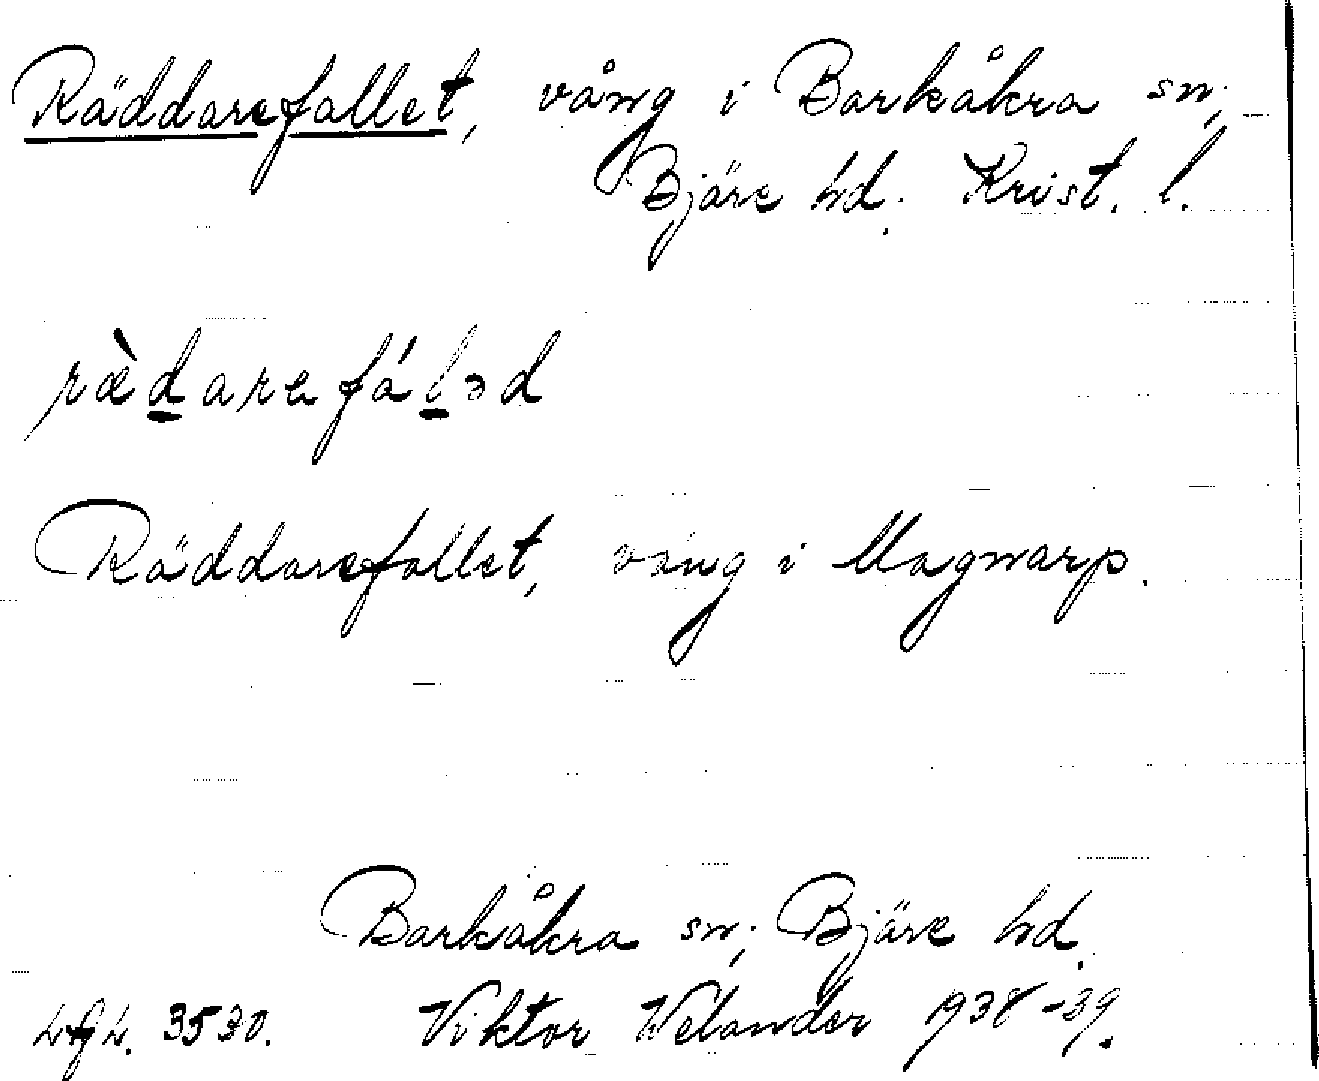 Räddarefallet, vång i Barkåkra sn;
Bjäre hd. Krist. l.
ræ̀d̲arefál̲əd
Räddarefallet, vång i Magnarp.
Barkåkra sn; Bjäre hd.
3530. Viktor Welander 1938-39.